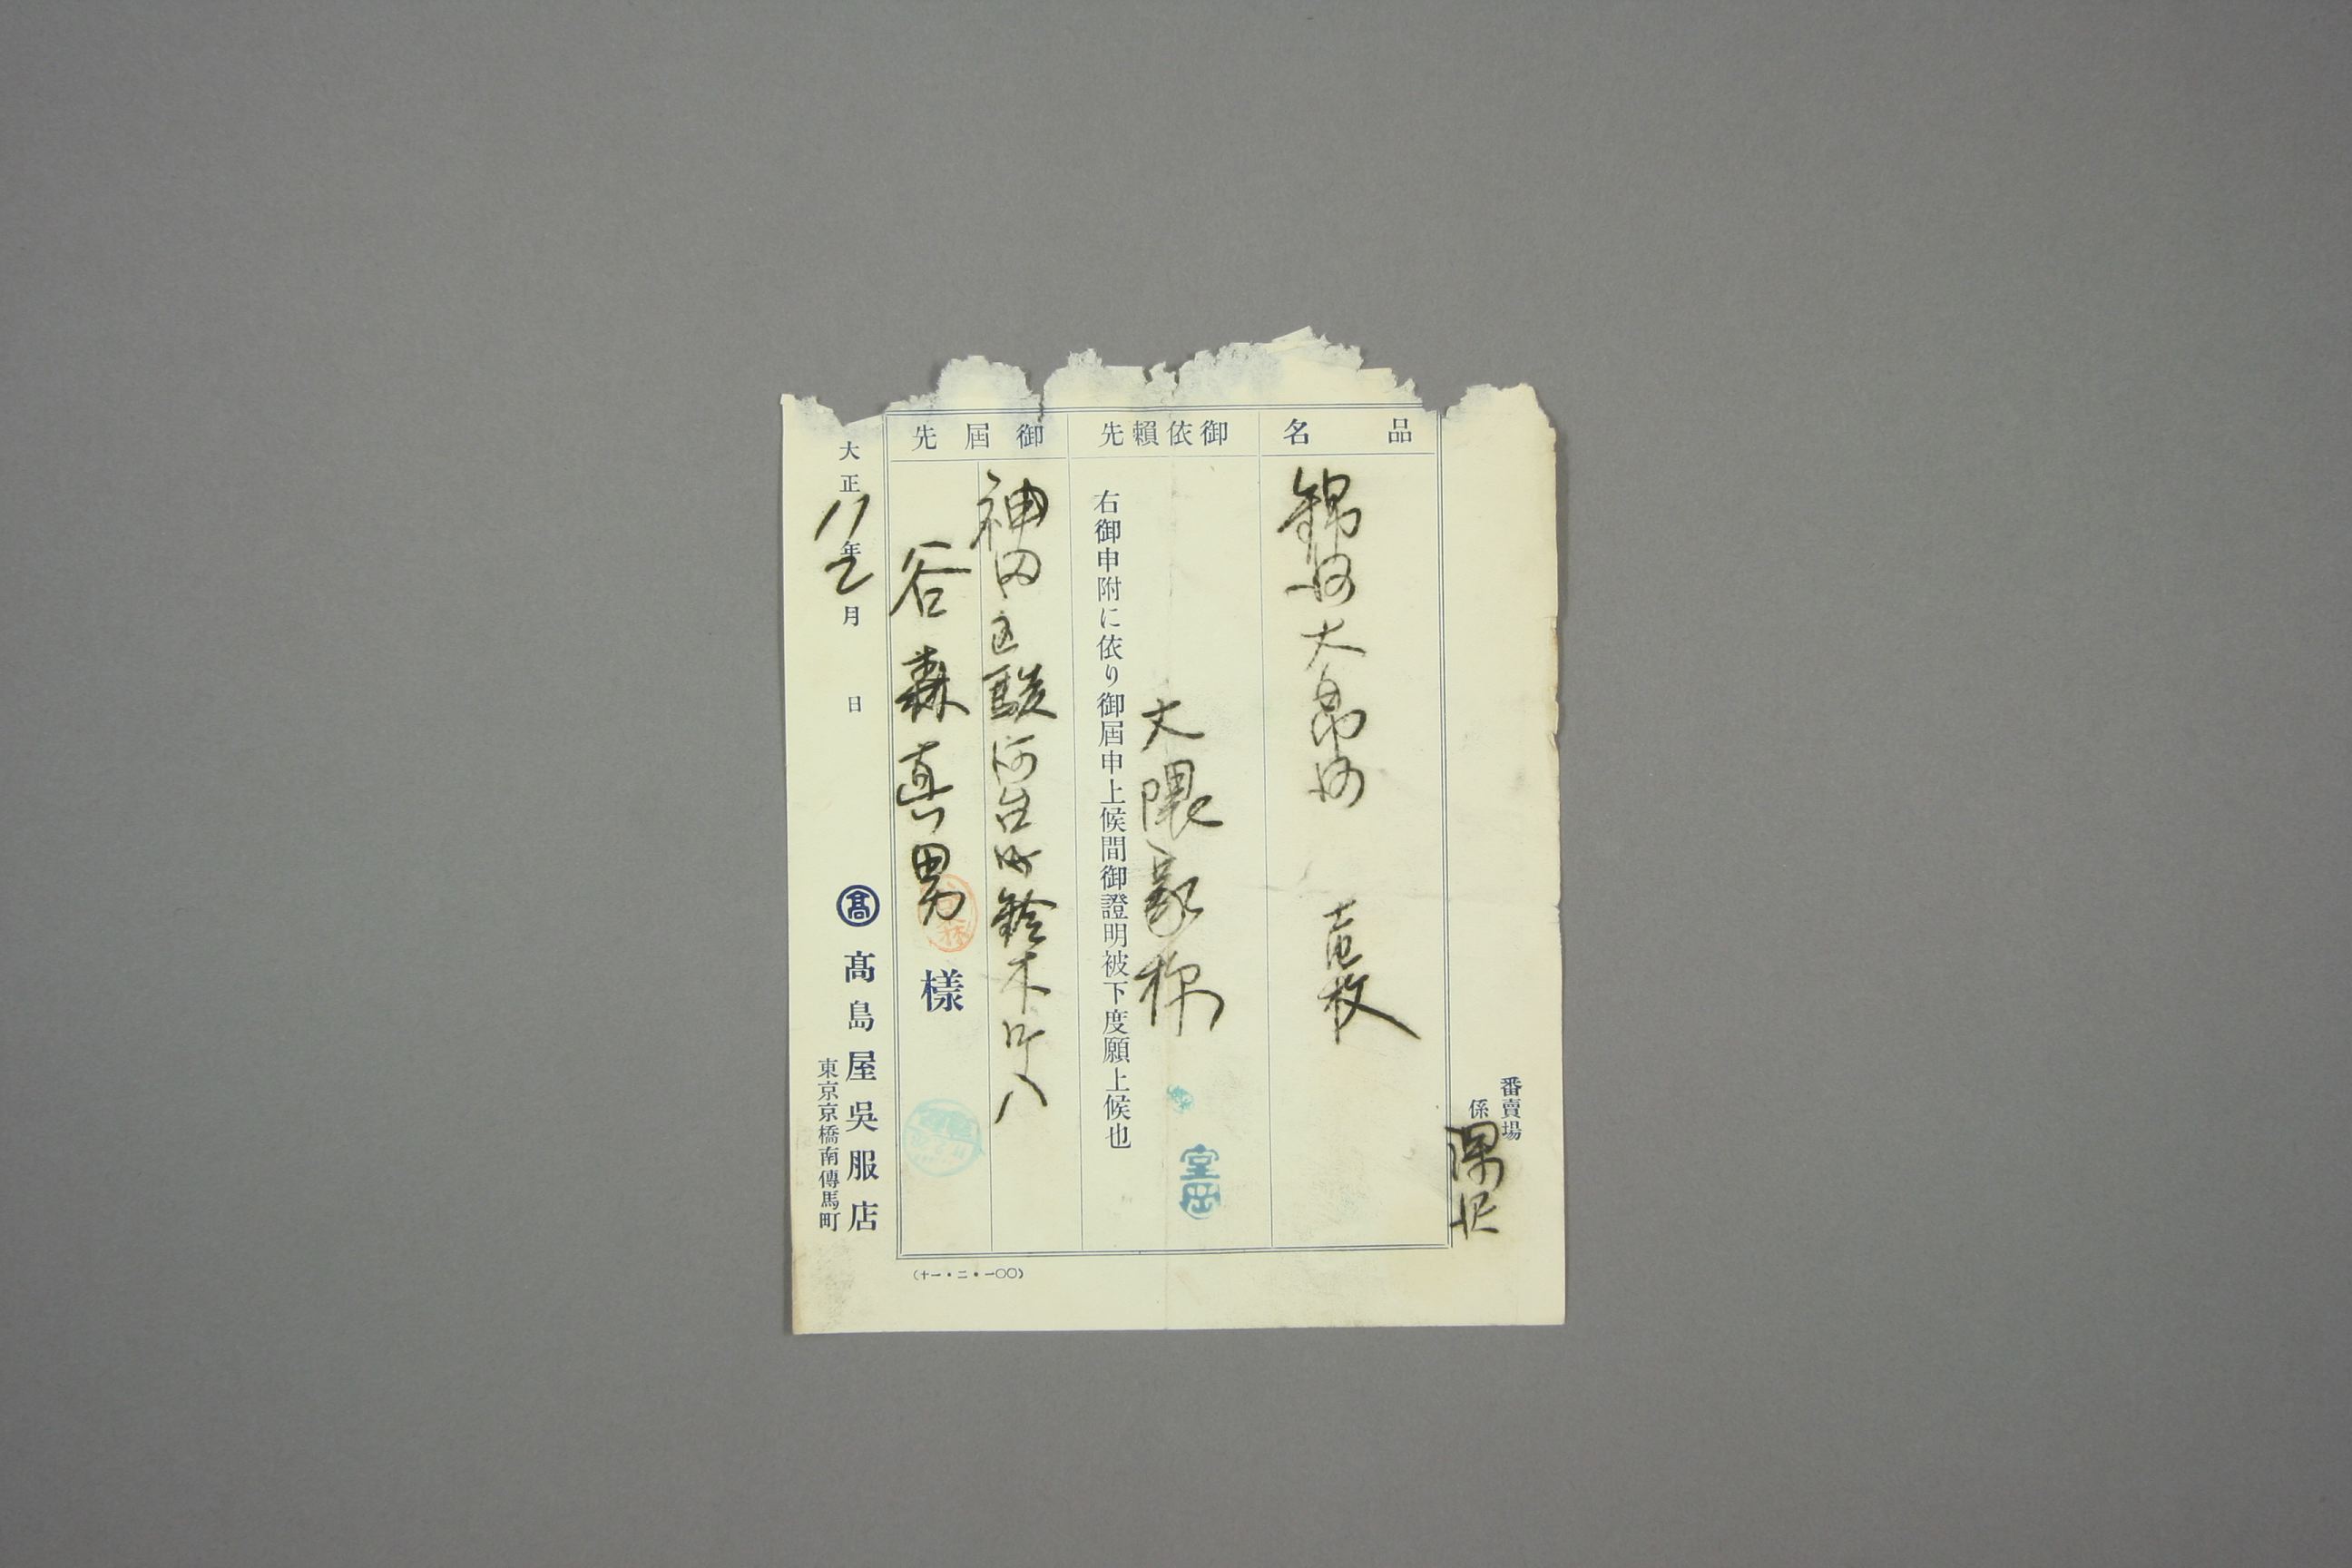 番賣場
係 深沢
品名
錦地大帛地 壱枚
御依賴先
大隈家様
右御申附に依り御届申上候間御證明被下度願上候也
御届先
神田区駿河台町鈴木丁八
谷森真男様
大正11年2月 日
髙 髙島屋吳服店
東京京橋南傳馬町
(十一・二・一〇〇)